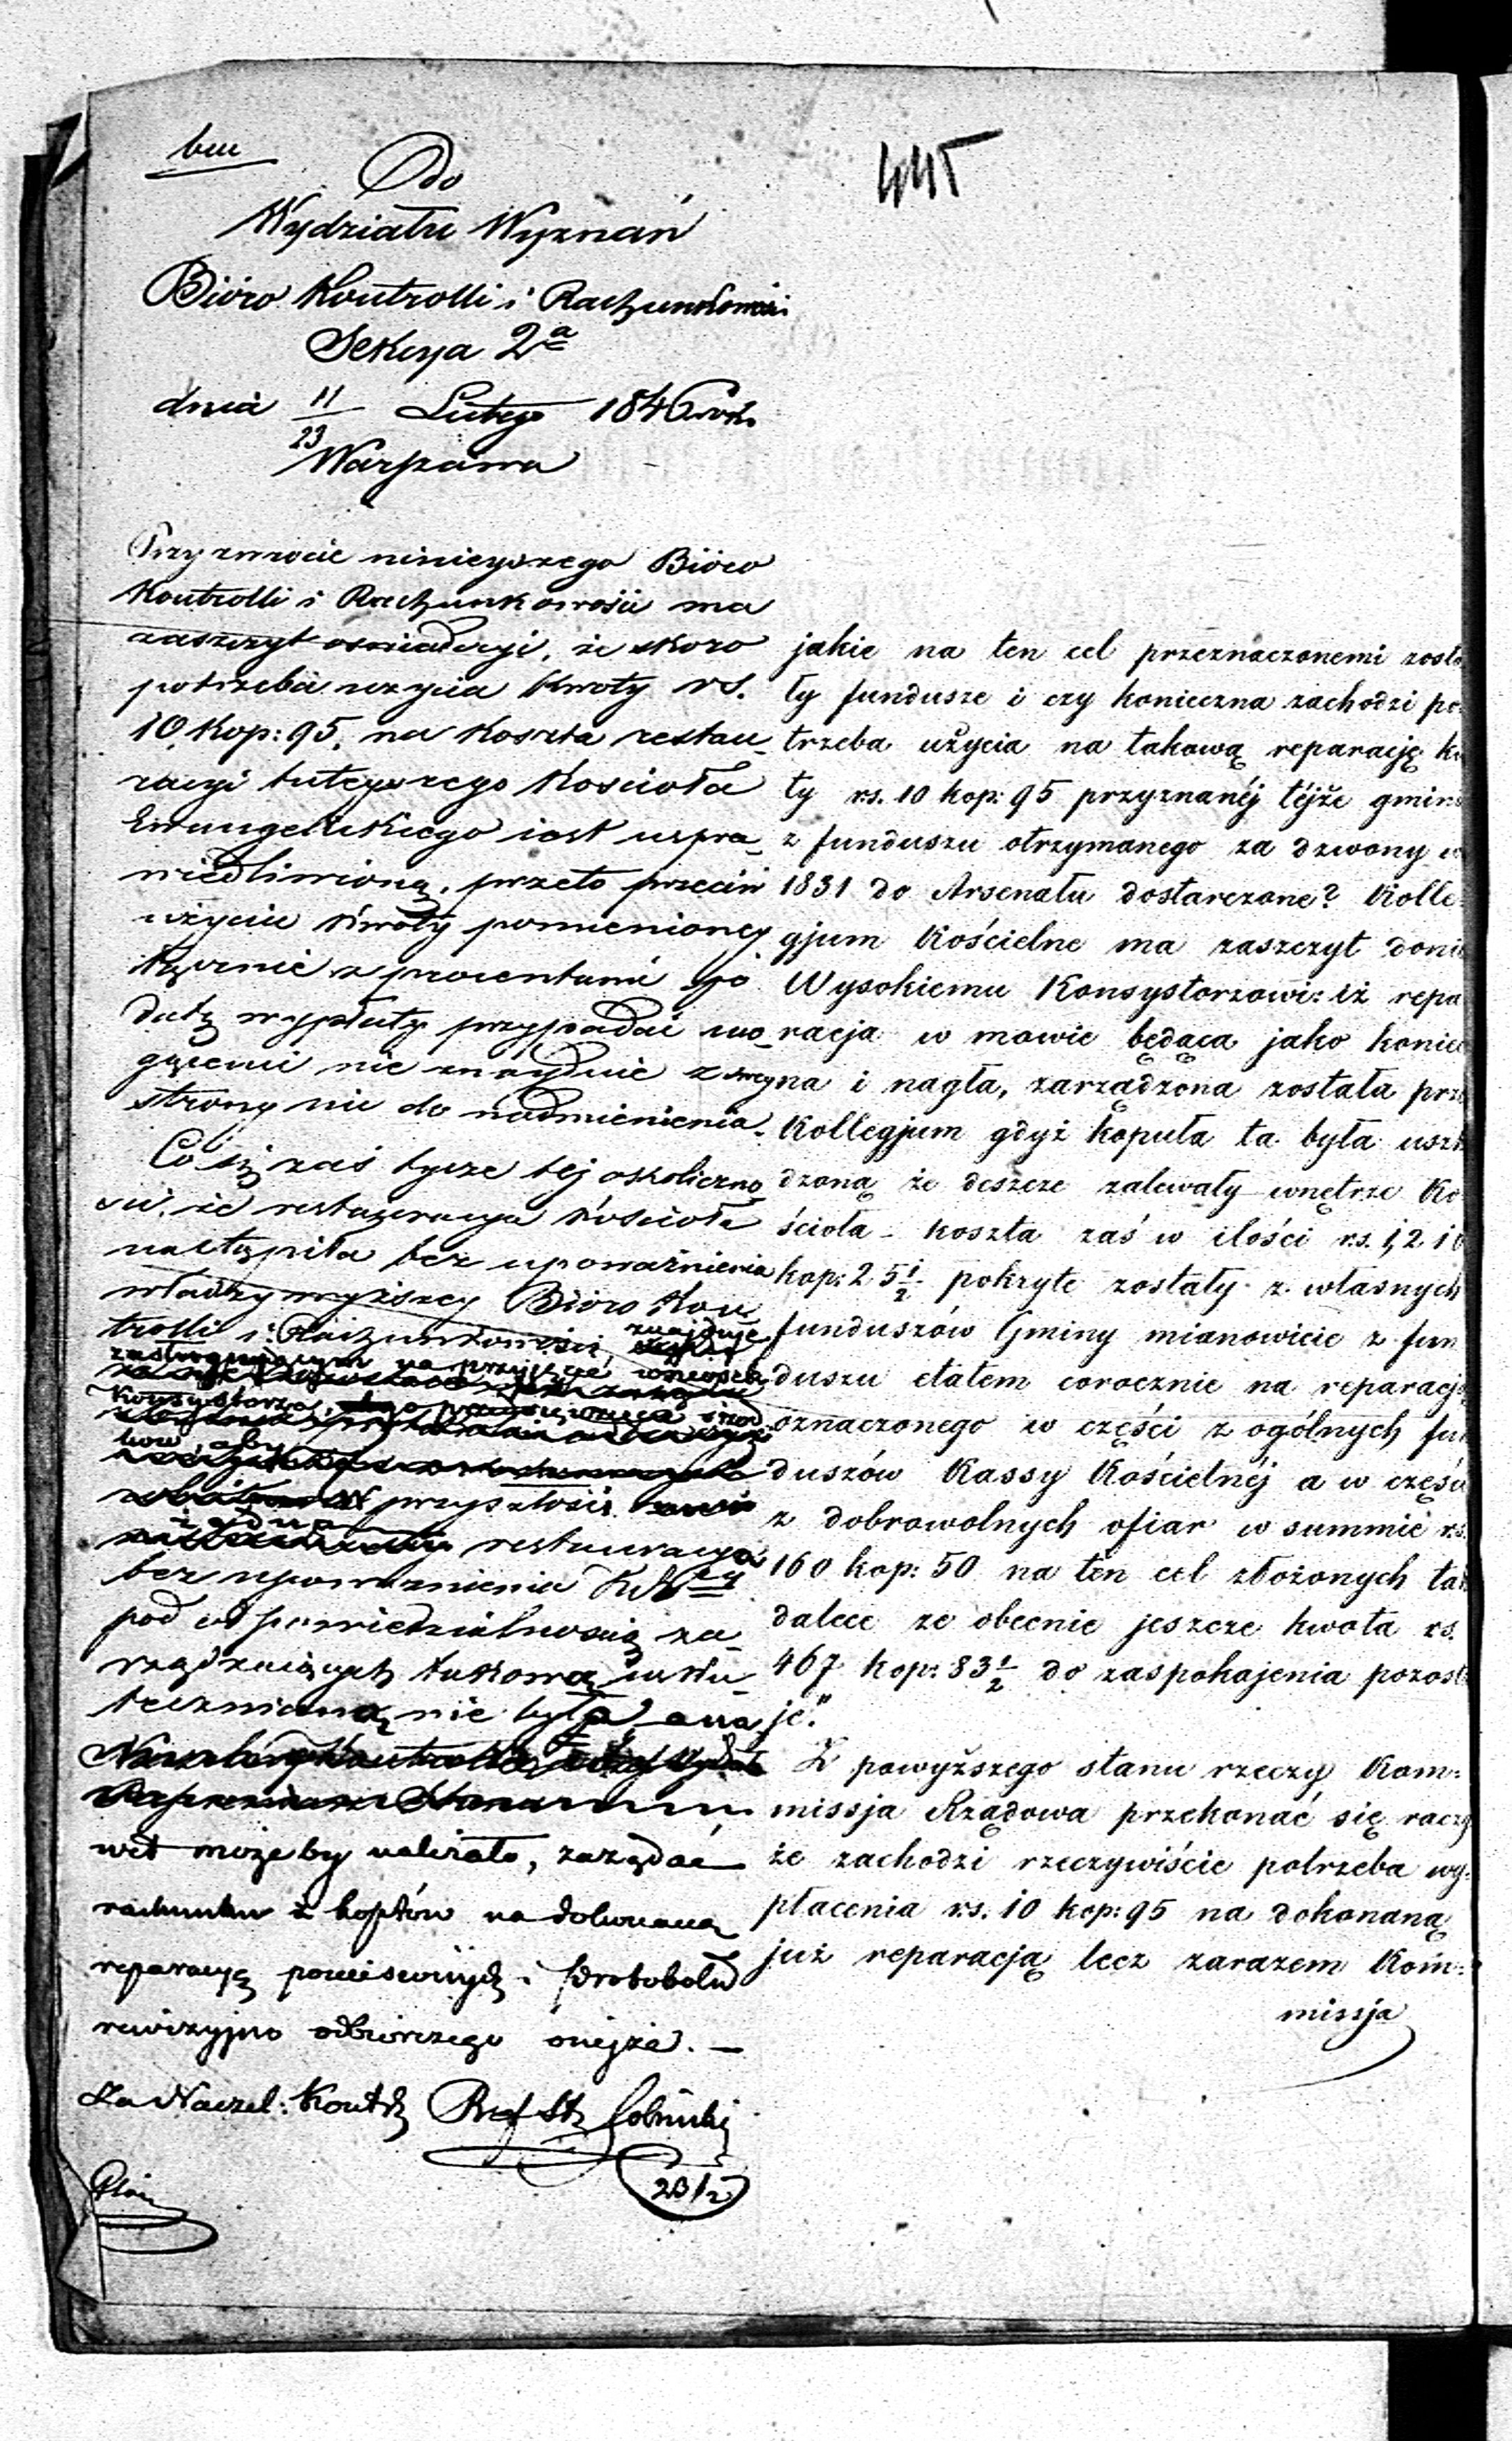 445
Do
Wydziału Wyznań
Bióro Kontrolli i Rachunkowości
Sekcya 2ª
dnia 11/23 Lutego 1846 roku
Warszawa
Przy zwrocie niniejszego Bióro
Kontrolli i Rachunkowości ma
zaszczyt oświadczyć, że skoro
potrzeba użycia kwoty rs.
10 kop: 95, na koszta restau-
racyi tutejszego Kościoła
Ewangelickiego iest uspra-
wiedliwioną, przeto przeciw
użyciu kwoty pomienioney
łącznie z procentami po
datę wypłaty przypadać mo-
gącemi nie znayduie z swey
strony nic do nadmienienia.
Co się zaś tycze tej okoliczno
ści, że restauracya kościoła
nastąpiła bez upoważnienia
władzy wyższey Bióro Kon
trolli i Rachunkowości, znajduje
zasługującym na przyjęcie wniosek
Konsystorza, środ
ków, aby
przyszłości
żadna restauracya
bez upoważnienia
pod odpowiedzialnością za-
rządzających takową usku-
teczniana nie była, a na
wet możeby należało, zażądać
rachunku z kosztów na dokonaną
reparacyą poniesionych i protokołu
rewizyjno odbiorczego oniejże. —
Za Naczel: Kontr
23/2
jakie na ten cel przeznaczonemi zosta
ły fundusze i czy konieczna zachodzi po
trzeba użycia na takową reparację kwo
ty rs. 10 kop: 95 przyznanéj téjże gmin
z funduszu otrzymanego za dzwony w
1831 do Arsenału dostarczone? Kolle-
gjum Kościelne ma zaszczyt doni
Wysokiemu Konsystorzowi: iż repa
racja w mowie będąca jako koniec
na i nagła, zarządzona została prze
Kollegjum gdyż kopuła ta była uszk
dzoną że deszcze zalewały wnętrze Ko
ścioła - koszta zaś w ilości rs. 1,210
kop: 25½ pokryte zostały z własnych
funduszów Gminy mianowicie z fun
duszu etatem corocznie na reparacją
oznaczonego w części z ogólnych fun
duszów Kassy Kościelnéj a w częśc
z dobrowolnych ofiar w summie rs.
160 kop: 50 na ten cel złożonych tak
dalece ze obecnie jeszcze kwota rs.
467 kop: 83½ do zaspokajenia pozost
je."
Z powyższego stanu rzeczy Kom:
missja Rządowa przekonać się raczy
że zachodzi rzeczywiście potrzeba wy-
płacenia rs. 10 kop: 95 na dokonaną
już reparacją lecz zarazem Kom:
missja